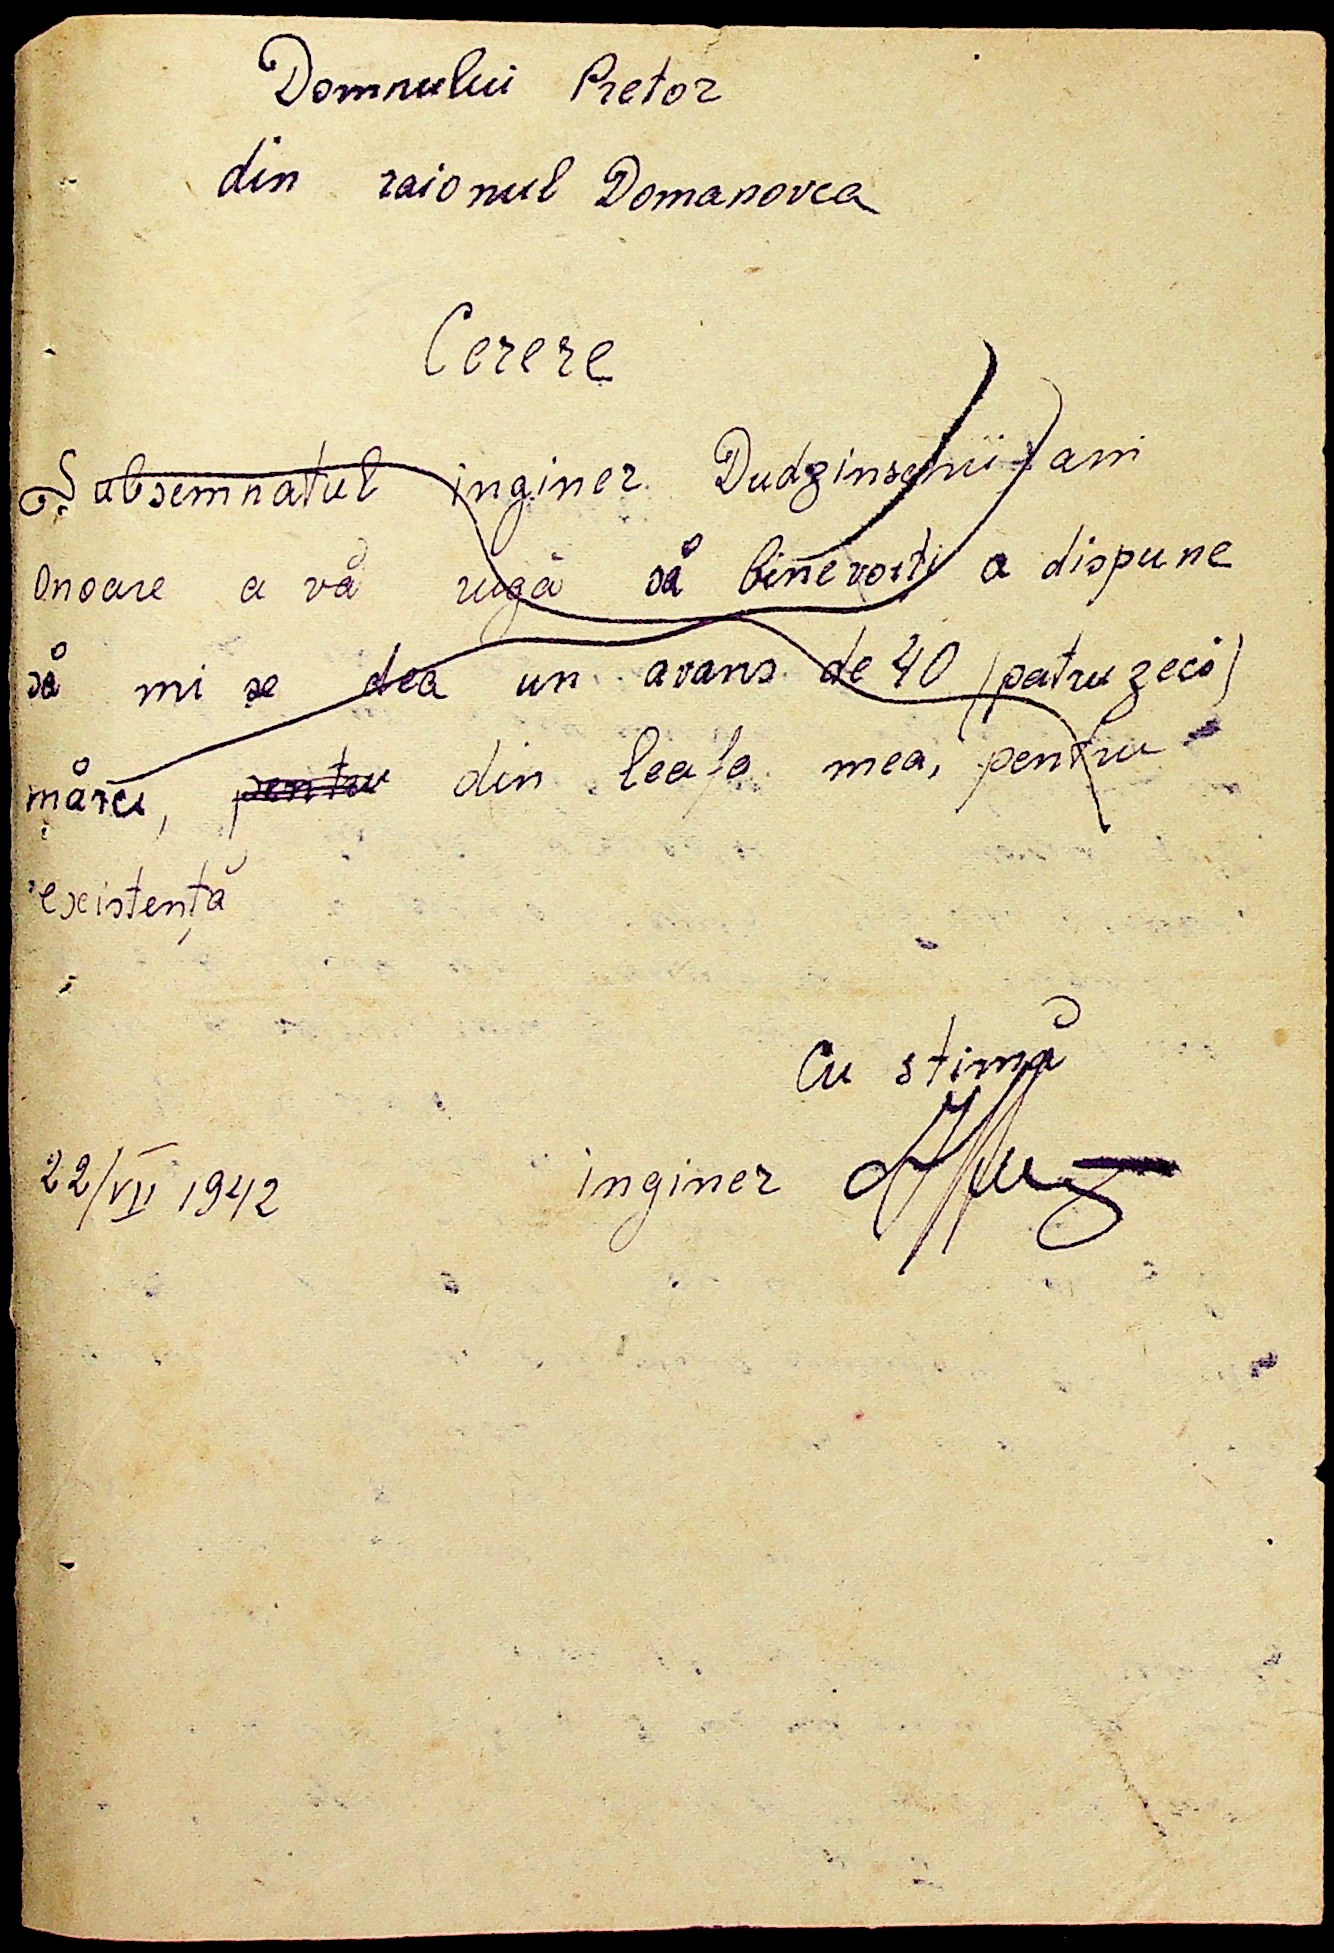 Domnului Pretor
din raionul Domanovca
Cerere
Subsemnatul inginer Dudzinschii am
onoare a vă rugă să binevoiti a dispune
să mi se dea un avans de 40 (patruzeci)
mărci, pentru din leafa mea, pentru
existență
Cu stimă
22/VII 1942 inginer